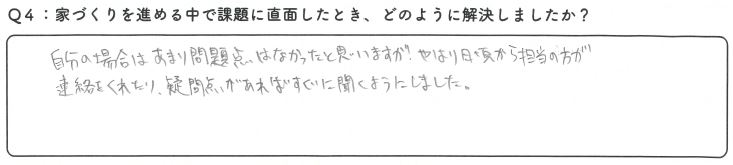 Q4：家づくりを進める中で課題に直面したとき、どのように解決しましたか？
自分の場合はあまり問題点はなかったと思いますが、やはり日頃から担当の方が
連絡をくれたり、疑問点があればすぐに聞くようにしました。